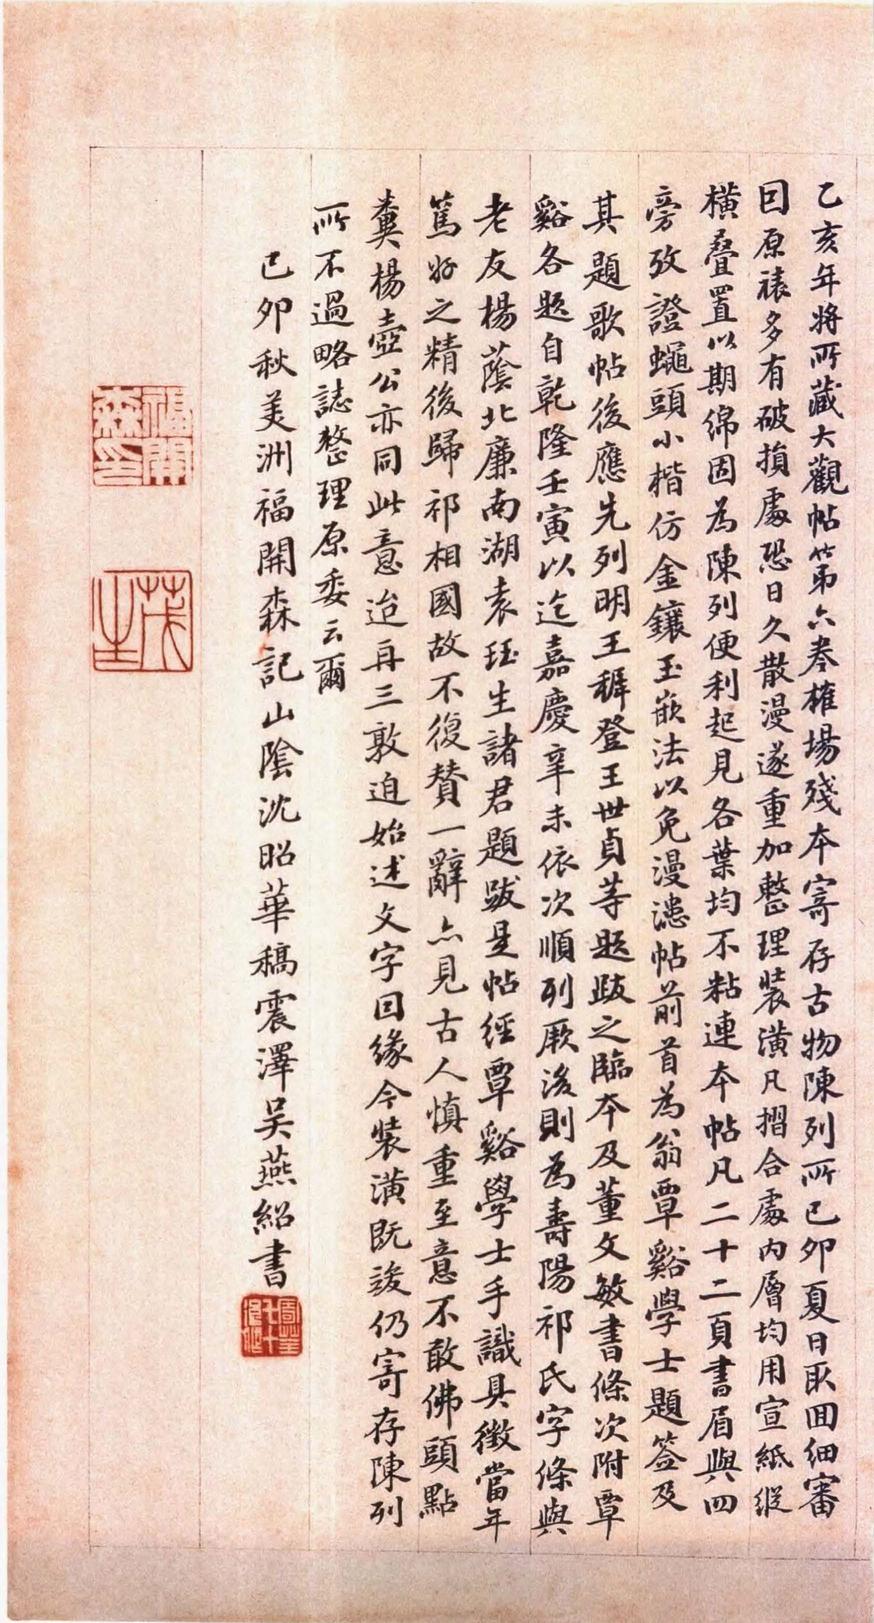 乙亥年將所藏大觀帖第六卷榷場殘本寄存古物陳列所己卯夏日取回細審
因原裱多有破損處恐日久散漫遂重加整理裝潢凡摺合處內層均用宣紙縱
橫疊置以期綿固為陳列便利起見各葉均不粘連本帖凡二十二頁書眉與四
旁攷證蠅頭小楷仿金鑲玉嵌法以免漫漶帖前首為翁覃谿學士題簽及
其題歌帖後應先列明王穉登王世貞等題跋之臨本及董文敏書條次附覃
谿各題自乾隆壬寅以迄嘉慶辛未依次順列厥後則為壽陽祁氏字條與
老友楊蔭北廉南湖袁珏生諸君題跋是帖經覃谿學士手識具徵當年
篤好之精後歸祁相國故不復贊一辭亦見古人慎重至意不敢佛頭點
糞楊壺公亦同此意迨再三敦迫始述文字因緣今裝潢既竣仍寄存陳列
所不過略誌整理原委云爾
己卯秋美洲福開森記山陰沈昭華稿震澤吳燕紹書
福開森印
茂生